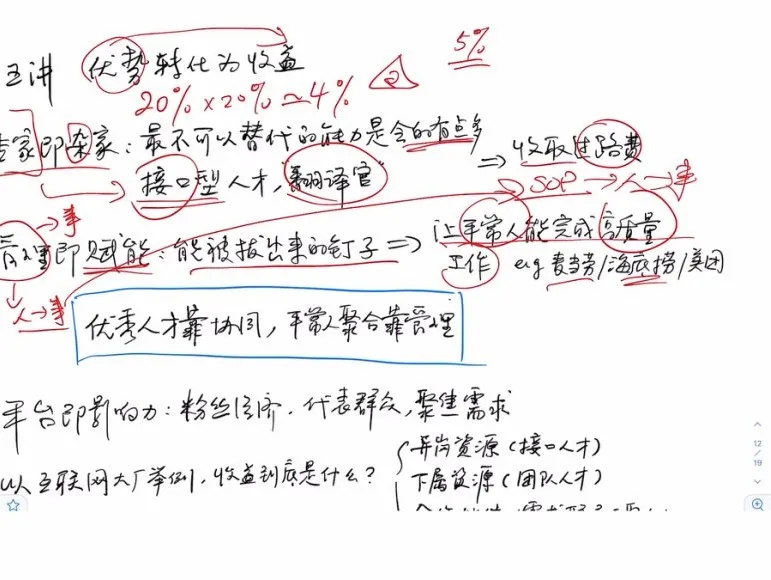 5%
主讲 优势转化为收益
20% × 20% ≈ 4% 2
专家即杂家：最不可以替代的能力是会的有点多
⇒ 收取过路费
接口型人才，"翻译官"
SOP → 人 → 事
→ 事
管理即赋能：能被拔出来的钉子 ⇒ 让平常人能完成高质量
工作 e.g 麦当劳/海底捞/美团
人 → 事
优秀人才靠协同，平常人聚合靠管理
平台即影响力：粉丝经济，代表群众，聚焦需求
以互联网大厂举例，收益到底是什么？
异岗资源（接口人才）
下属资源（团队人才）
12
/
19